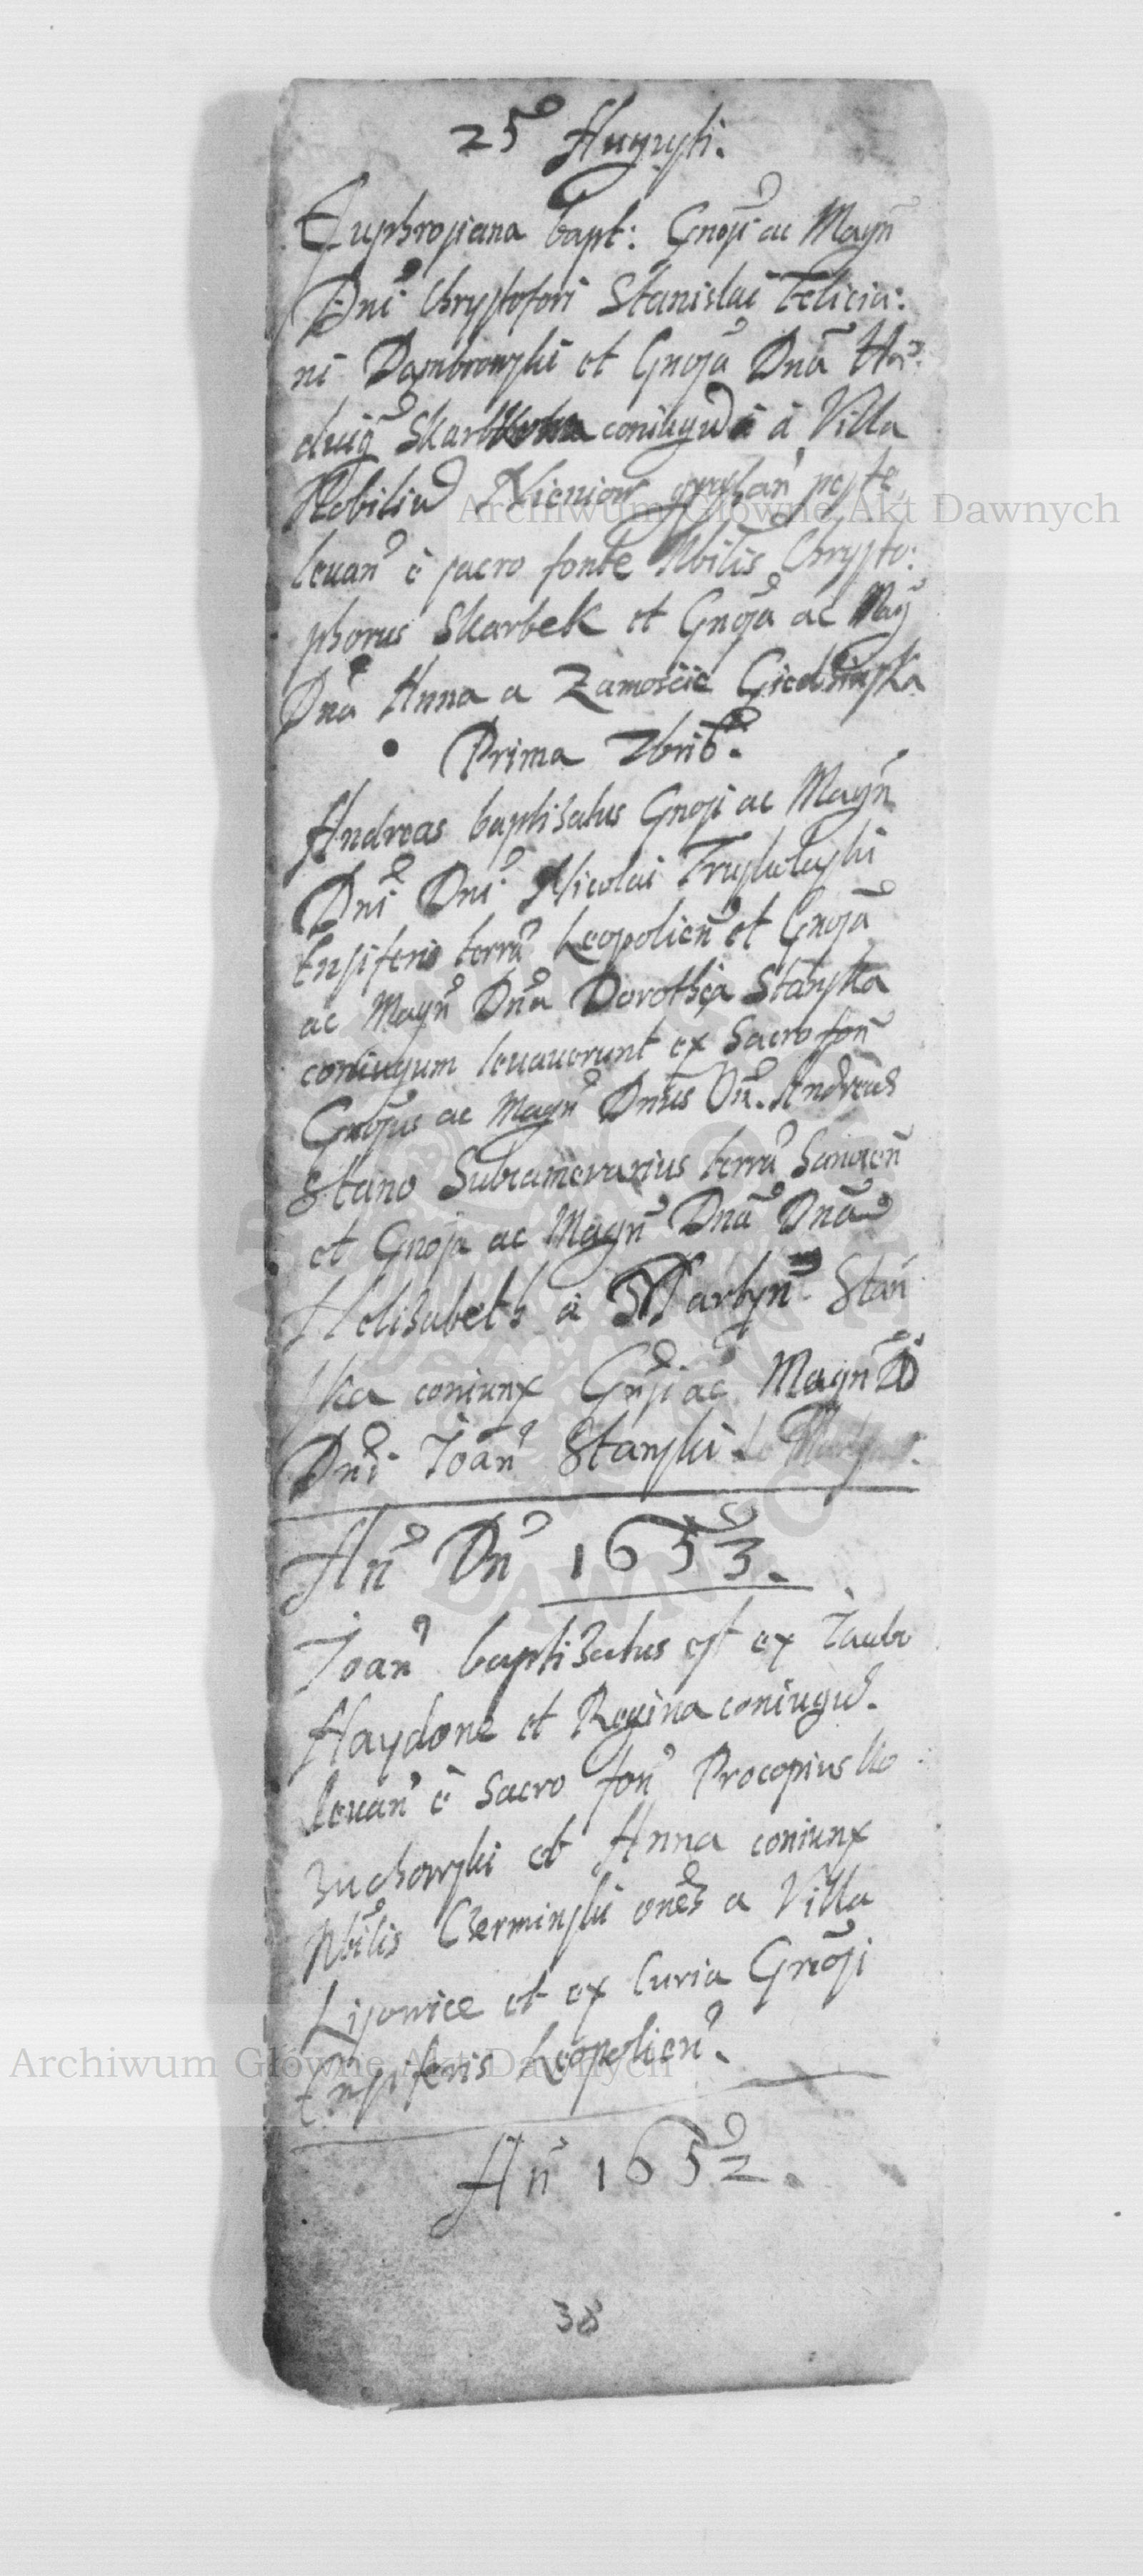 25º Augusti.
Euphrosiana bapt: Gnosi ac Magn̄
Dni Chrystofori Stanislai Felicia:
ni Dambrowski et Gnosa Dna He:
duig Skarbkowna coniugū a Villa
Nobiliū
leuan̄ è sacro fonte Nbilis Chrysto:
phorus Skarbek et Gnosa ac Mag
Dna Anna a Zamoscie Giedzinska
Prima 7bris.
Andreas baptisatus Gnosi ac Magn̄
Dni Dni Nicolai
Ensiferis terræ Leopolien̄ et Gnosa
ac Magn̄ Dna Dorothea Stanska
coniugum leuauerunt ex Sacro fon̄
Gnosus ac Magn̄ Dnus Dn̄. Andreas
Stano Subcamerarius terræ Sanocen̄
et Gnosa ac Magn̄ Dna Dna
Helisabeth à Stan
ska coniunx Gnsi ac Magn̄ D
Dni Ioan̄ Stanski
An̄ Dn̄ 1653.
Ioan̄ baptisatus est ex Iacubo
Haydone et Regina coniugū.
leuan̄ è Sacro fon̄ Procopius Ko
zuchowski et Anna coniunx
Nbilis Czerminski ones a Villa
Lisowice et ex Curia Gnosi
Ensiferis Leopolien̄.
An̄ 1652.
38
Archiwum Główne Akt Dawnych
Archiwum Główne Akt Dawnych